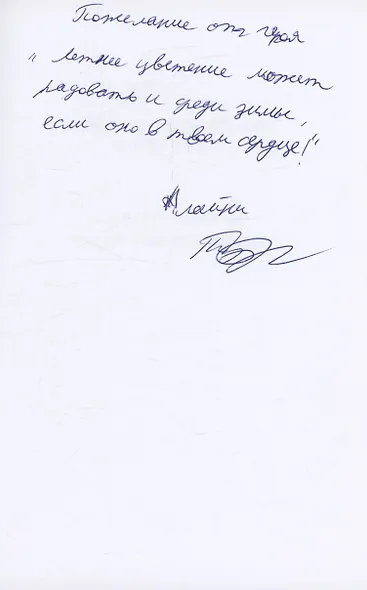 Пожелание от героя
"Летнее цветение может
радовать и среди зимы,
если оно в твоем сердце!"
Алайни